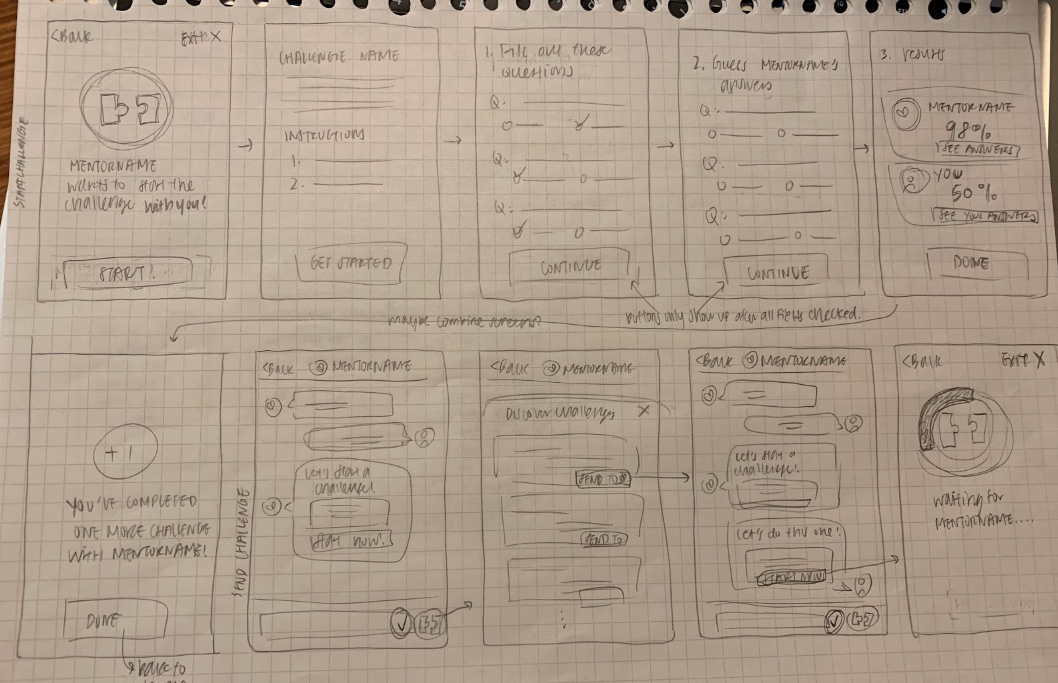 START CHALLENGE
<Back
EXIT X
MENTORNAME
wants to start the
challenge with you!
START!
CHALLENGE NAME
INSTRUCTIONS
1.
2.
GET STARTED
1. Fill out these
questions
Q:
Q:
Q:
CONTINUE
2. Guess MENTORNAME's
answers
Q:
Q:
Q:
CONTINUE
3. results
MENTORNAME
98%
SEE ANSWERS
YOU
50%
SEE YOUR ANSWERS
DONE
maybe combine screens?
buttons only show up after all fields checked.
+1!
YOU'VE COMPLETED
ONE MORE CHALLENGE
WITH MENTORNAME!
DONE
back to
SEND CHALLENGE
<Back MENTORNAME
Let's start a
challenge!
start now!
<Back MENTORNAME
Discover challenges X
SEND TO
SEND TO
<Back MENTORNAME
Let's start a
challenge!
Let's do this one!
START NOW
<Back
EXIT X
waiting for
MENTORNAME....